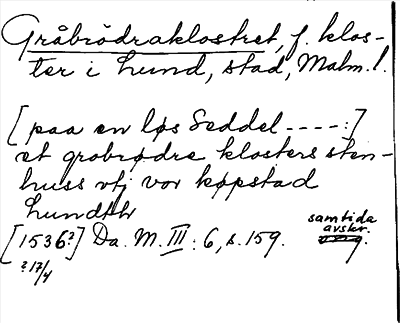 Gråbrödraklostret, f. klos-
ter i Lund, stad, Malm. l.
[paa en løs Seddel ----:]
et grobrødre klosters sten-
huss vtj vor køpstad
Lundth
[1536?] Da. M. III: 6, s. 159.
samtida
avskr.
? 17/4